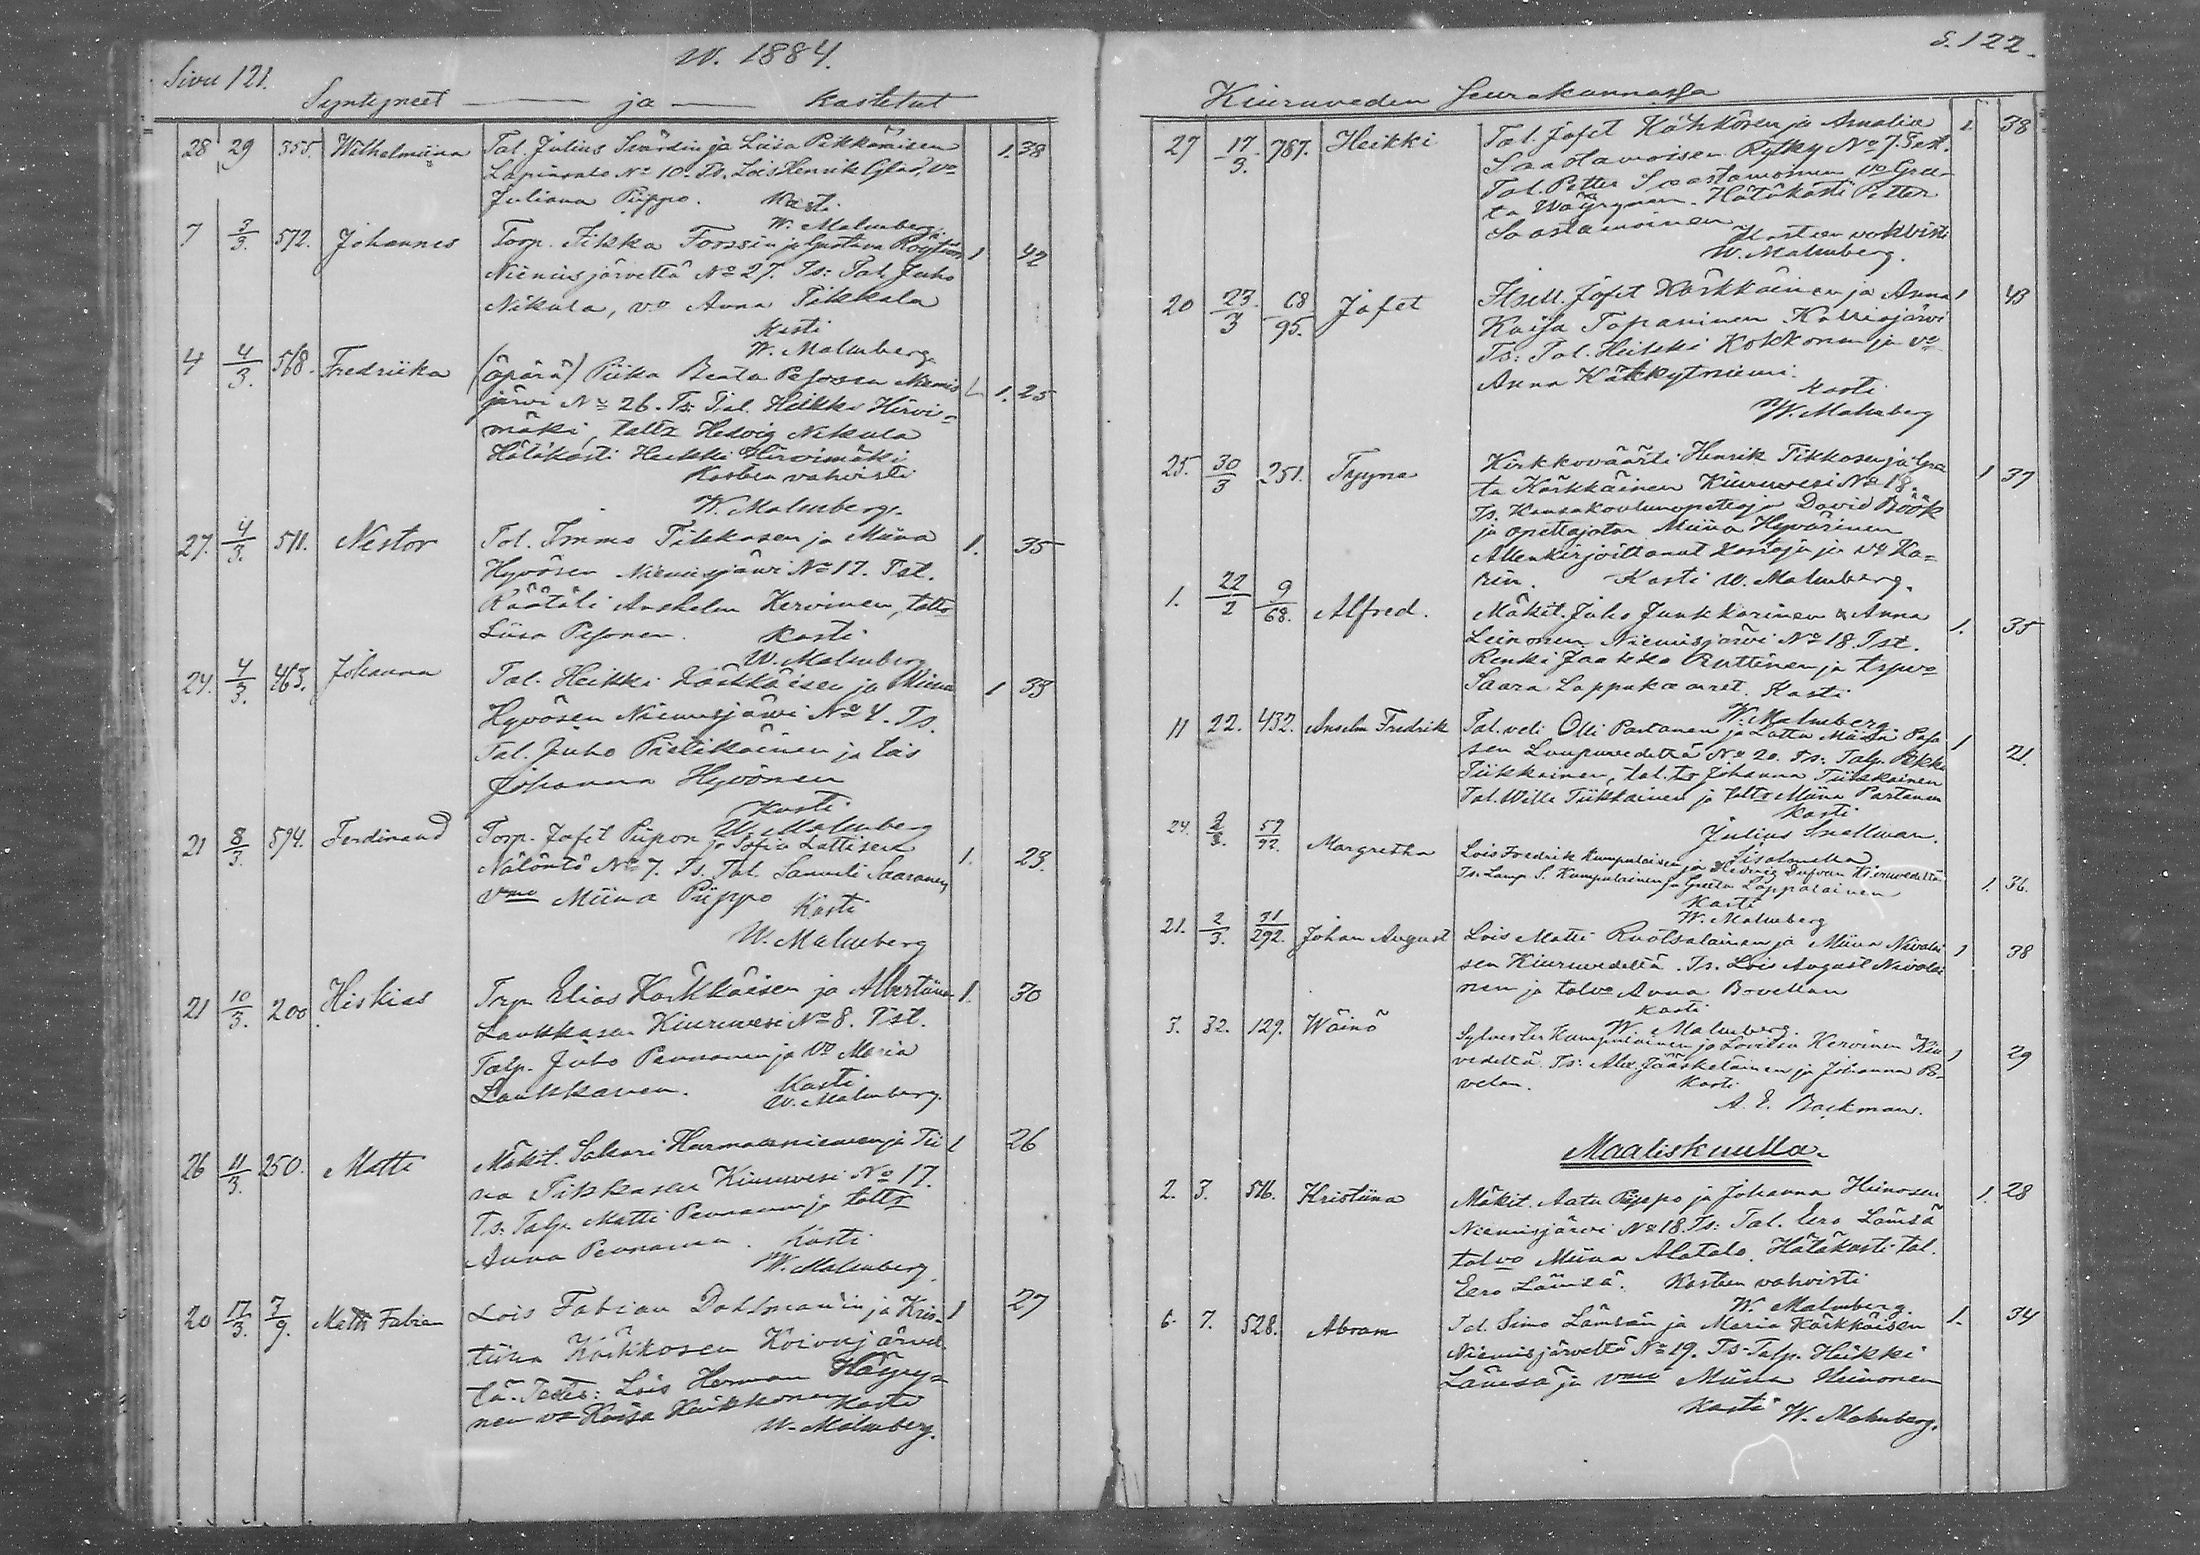 Sivu 121.
w. 1884.
Syntyneet ja kastetut
28 29 355. Wilhelmiina Tal. Julius Svärdin ja Liisa Pikkäraisen 1. 38
No 10. Ts. Lois Henrik vo
Juliana Piippo. Kasti
W. Malmberg.
7 3/3. 572. Johannes Torp. Pekka Forssin ja Gustava 1 42
Niemisjärveltä No 27. Ts: Tal. Juho
Nikula, vo Anna Tikkala
Kasti
W. Malmberg.
4 4/3. 568. Fredriika (äpärä) Piika Beata Pesosen Niemis 1. 25
järvi No 26. Ts: Tal. Heikki Hirvi-
mäki, taltr Hedvig Nikula
Hätäkasti Heikki Hirvimäki
Kasteen vahvisti
W. Malmberg.
27. 4/3. 511. Nestor Tal. Immo Tikkasen ja Miina 1. 35
Hyvösen Niemisjärvi No 17. Tst.
Räätäli Anshelm Kervinen, taltr
Liisa Pesonen. Kasti
W. Malmberg
24. 4/3. 463. Johanna Tal. Heikki Kärkkäisen ja Miina 1 33
Hyvösen Niemisjärvi No 4. Ts.
Tal. Juho Pielikäinen ja lois
Johanna Hyvönen
Kasti
W. Malmberg
21 8/3. 594. Ferdinand Torp. Jafet Piipon ja Sofia Lattisen 1. 23.
Näläntö No 7. Ts. Tal. Samuli Saaranen
vmo Miina Piippo Kasti
W. Malmberg
21 10/3. 200. Hiskias Trp. Elias Kärkkäisen ja Albertiina 1. 30
Laukkasen Kiuruvesi No 8. Tst.
Talp. Juho Pennanen ja vo Maria
Laukkanen. Kasti
W. Malmberg.
26 11/3. 250. Matti Mäkit. Sakari Harmaaniemen ja Tii 1 26
na Tikkasen Kiuruvesi No 17.
Ts. Talp. Matti Pennanen ja taltr
Anna Pennanen. Kasti
W. Malmberg.
20 17/3. 7/9. Matti Fabian Lois Fabian Dahlman'in ja Kris- 1 27
tiina Kärkkosen Koivujärvel
tä. Testes: Lois Herman Häyry-
nen vo Kaisa Kärkkonen Kasti
W. Malmberg.
S. 122.
Kiuruveden Seurakunnassa
27 17/3. 787. Heikki Tal. Jafet Kähkösen ja Amalia 1. 38
Saastamoisen Rytky No 7. Test.
Tal. Petter Saastamoinen vo Gree-
ta Wäyrynen. Hätäkasti Petter
Saastamoinen
Kasteen vahvisti
W. Malmberg.
20 23/3 68/95. Jafet Itsell. Jafet Kärkkäinen ja Anna 1 43
Kaisa Tapaninen Kalliojärvi
Ts: Tal. Heikki Kokkonen ja vo
Anna Kätkytniemi.
Kasti
W. Malmberg
25. 30/3 251. Tyyne Kirkkoväärti Henrik Tikkasen ja Gree 1 37
ta Kärkkäinen Kiuruvesi No 18.
Ts. Kansakoulunopettaja David Böök
ja opettajatar Miina Hyvärinen
Allenkirjoittanut Kastaja ja vo Ka-
rin. Kasti W. Malmberg.
1. 22/2 9/68. Alfred. Mäkit. Juho Junkkarinen & Anna 1. 35
Leinonen Niemisjärvi No 18. Tst.
Renki Jaakko Ruttinen ja trpvo
Saara Lappakaaret. Kasti
W. Malmberg.
11 22. 432. Anselm Fredrik Tal. veli Olli Partanen ja Lotta Maria Paja 1 21.
sen Luupuvedeltä No 20. Ts: Talp. Pekka
Tiikkainen, tal. tr Johanna Tiikkainen
Tal. Wille Tiikkainen ja taltr Miina Partanen
Kasti
Julius Snellman.
Iisalmella
24. 2/3. 59/92. Margretha Lois Fredrik Kumpulaisen ja Hedvig Dufvan Kiuruvedeltä 1. 36.
Ts. Lamp. S. Kumpulainen ja Greta Lappalainen
Kasti
W. Malmberg
21. 2/3. 31/292. Johan August Lois Matti Ruotsalainen ja Miina Nivalai 1 38
sen Kiuruvedeltä. Ts. Lois August Nivalai
nen ja talvo Anna Bovellan
Kasti
W. Malmberg.
3. 22. 129. Wäinö Sylvester Kumpulainen ja Lovisa Kervinen Kiu 1 29
vedeltä. Ts: Alex. Jääskeläinen ja Johanna Bo-
velan. Kasti
A. E. Backman.
Maaliskuulla.
2. 3. 516. Kristiina Mäkit. Aatu Piippo ja Johanna Hiinosen 1. 28
Niemisjärvi No 18. Ts: Tal. Eero Lämsä
talvo Miina Alatalo. Hätäkasti tal.
Eero Lämsä. Kasteen vahvisti
W. Malmberg.
6. 7. 528. Abram Tal. Simo Lämsän ja Maria Kärkkäisen 1. 34
Niemisjärveltä No 19. Ts. Talp. Heikki
Lämsä ja vmo Miina Hiinonen
Kasti W. Malmberg.